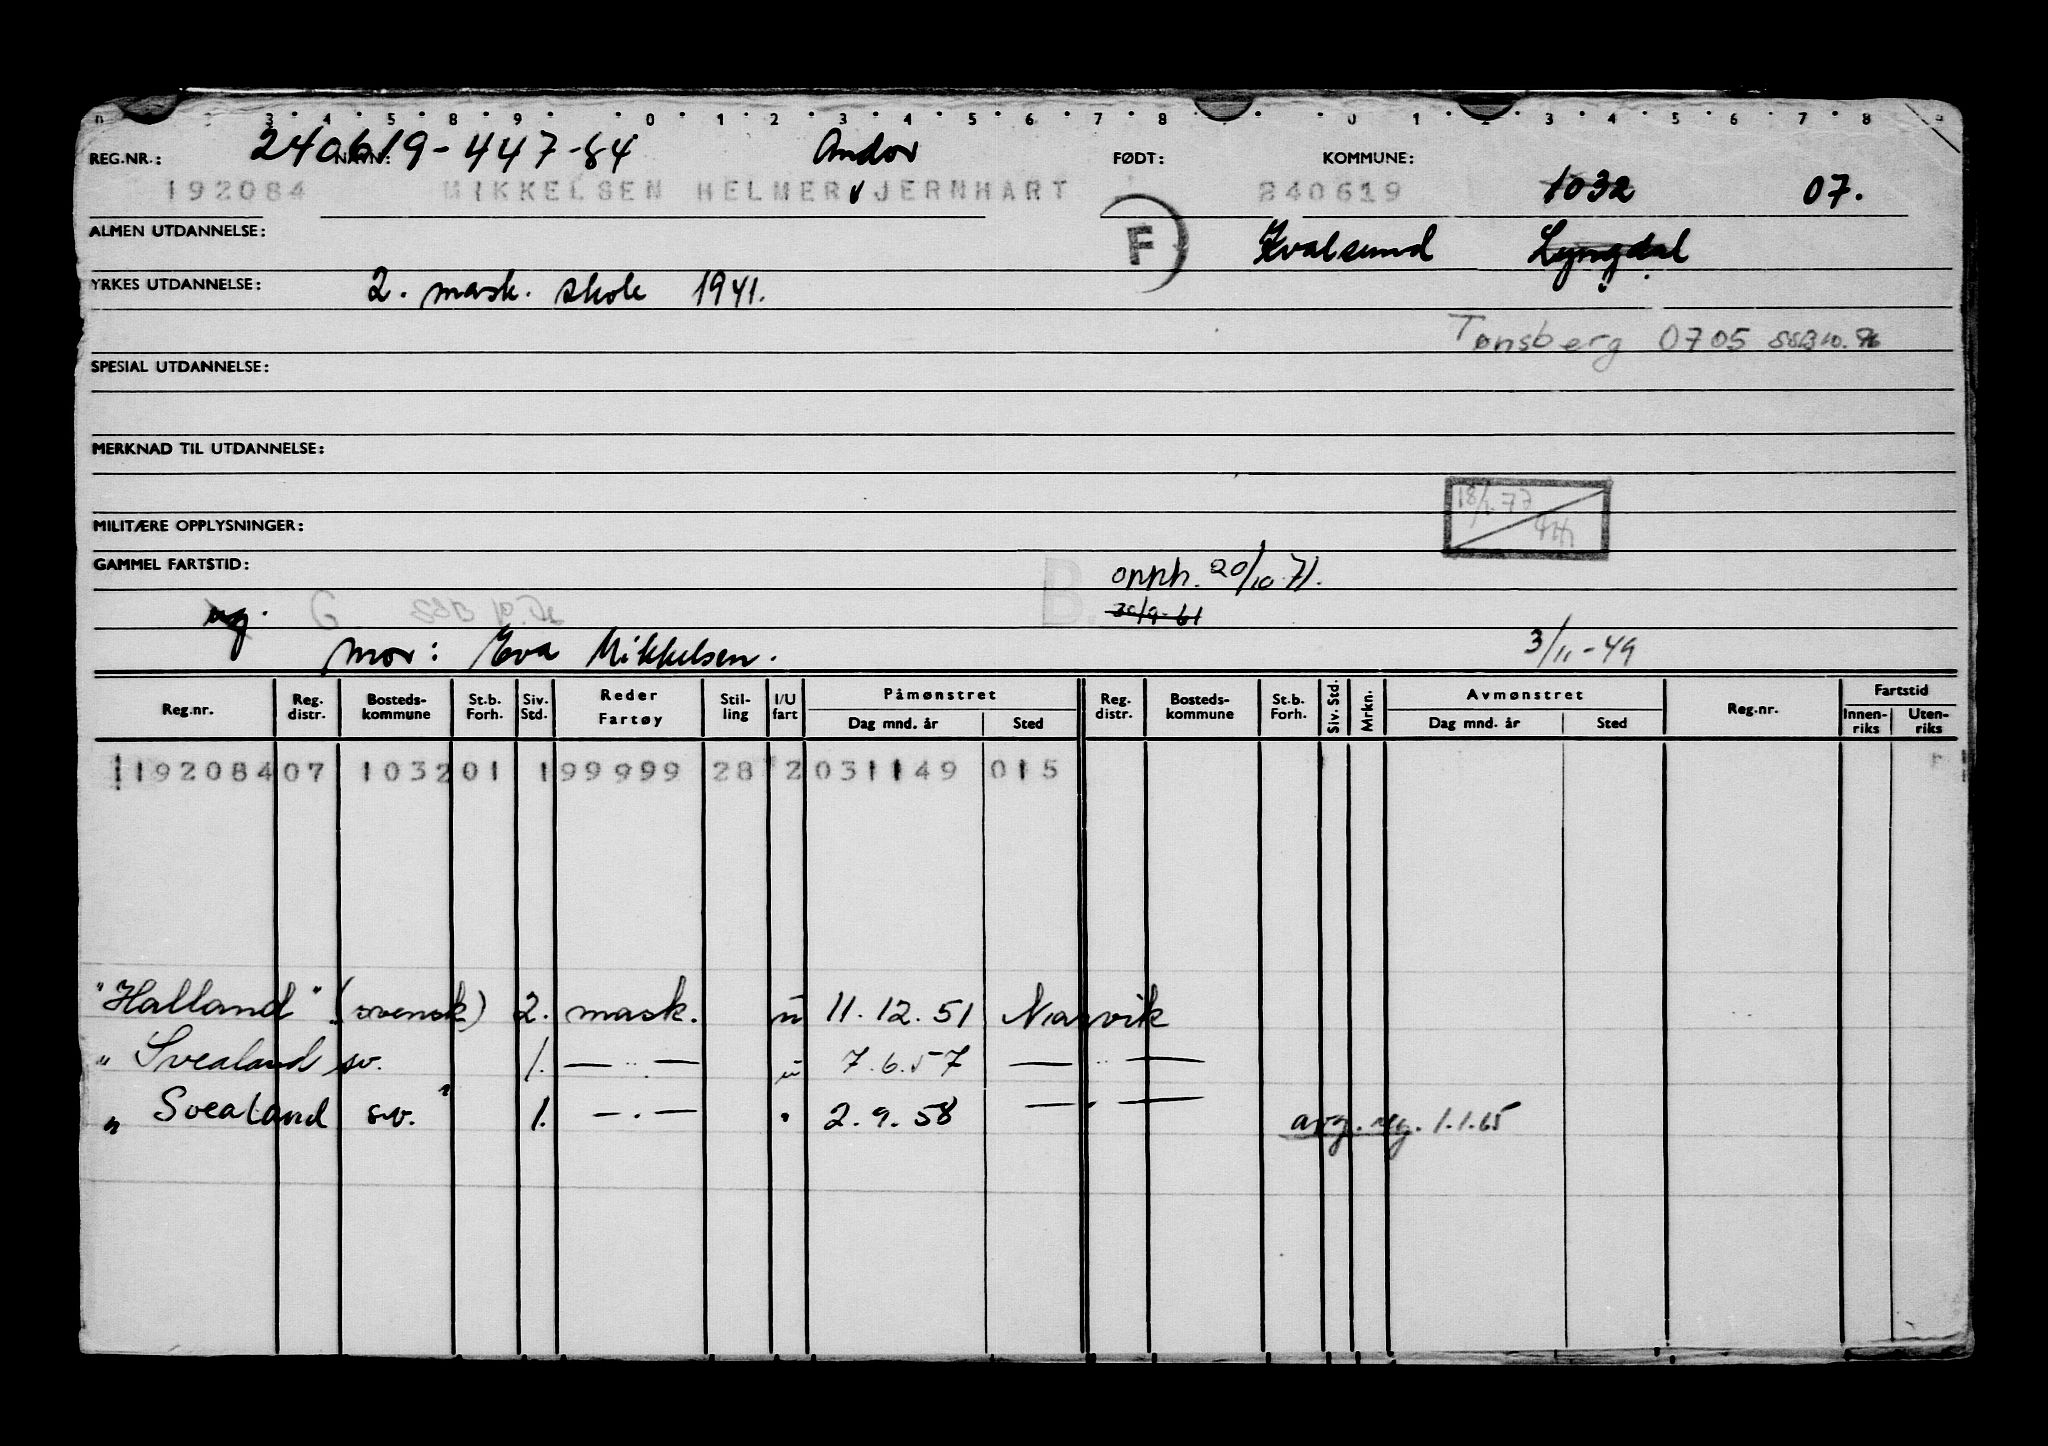 240619-447-84 Andor
REG.NR.: NAVN: FØDT: KOMMUNE:
192084 MIKKELSEN HELMER JERNHART 240619 1032 07.
ALMEN UTDANNELSE: F Kvalsund Lyngdal
YRKES UTDANNELSE: 2. mask. skole 1941.
Tønsberg 0705
SPESIAL UTDANNELSE:
MERKNAD TIL UTDANNELSE:
18/1.77
MILITÆRE OPPLYSNINGER:
GAMMEL FARTSTID: B. opph. 20/10.71.
ug. G 30/9-61
mor: Eva Mikkelsen. 3/11-49
Reg.nr. Reg. distr. Bosteds-kommune St.b. Forh. Siv. Std. Reder Fartøy Stil-ling I/U fart Påmønstret Dag mnd. år Sted Reg. distr. Bosteds-kommune St.b. Forh. Siv. Std. Mrkn. Avmønstret Dag mnd. år Sted Reg.nr. Fartstid Innen-riks Uten-riks
119208407 103201 199999 28 2 031149 015
"Halland" (svensk) 2. mask. u 11.12.51 Narvik
" Svealand sv. 1. — " — u 7.6.57 — " —
" Svealand sv. " 1. — . — " 2.9.58 — " —
avg. reg. 1.1.65